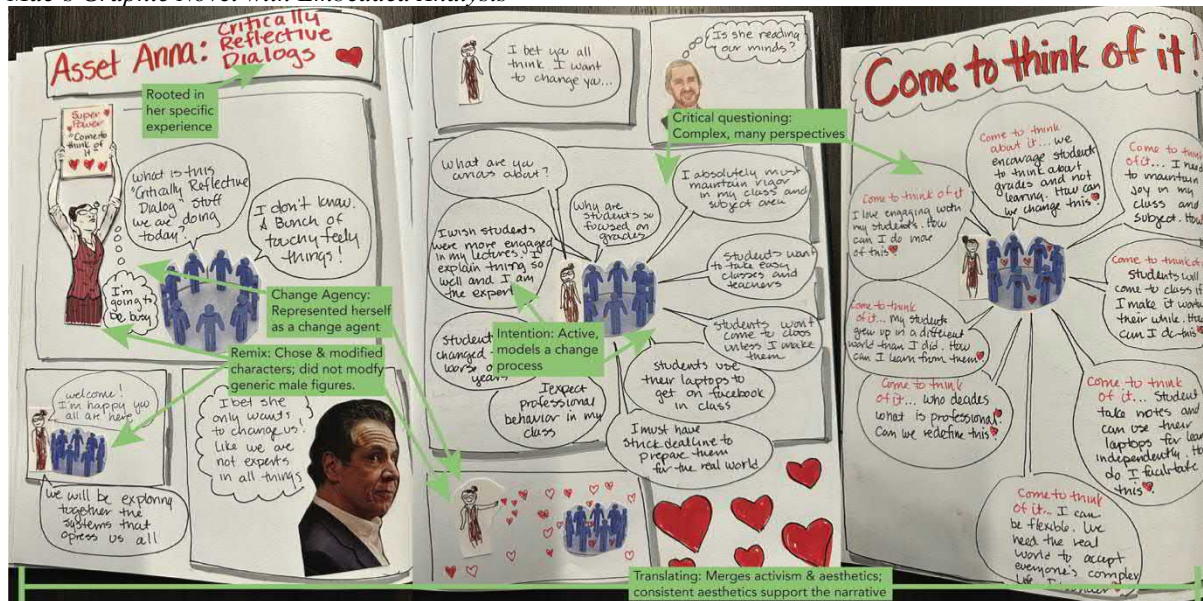 Mae's Graphic Novel with Embedded Analysis
Asset Anna: Critically
Reflective
Dialogs
Rooted in
her specific
experience
Super
Power
"Come to
think of
it"
What is this
"Critically Reflective
Dialog" stuff
we are doing
today?
I don't know.
A Bunch of
touchy feely
things!
I'm
going to
be busy
Change Agency:
Represented herself
as a change agent
Remix: Chose & modified
characters; did not modfy
generic male figures.
welcome!
I'm happy you
all are here
We will be exploring
together the
systems that
opress us all
I bet she
only wants
to change us!
Like we are
not experts
in all things
I bet you all
think I want
to change you...
Is she reading
our minds?
Critical questioning:
Complex, many perspectives
What are you
curious about?
Why are
students so
focused on
grades
I absolutely must
maintain rigor
in my class and
subject area
I wish students
were more engaged
in my lectures. I
explain thing so
well and I am
the expert
Students want
to take easy
classes and
teachers
Intention: Active,
models a change
process
Students won't
come to class
unless I make
them
Student
changed
worse
years
I expect
professional
behavior in my
class
Students use
their laptops to
get on facebook
in class
I must have
strick deadline to
prepare them
for the real world
Come to think of it!
Come to think
about it... we
encourage student
to think about
grades and not
learning. How can
we change this
Come to think
of it... I need
to maintain
joy in my
class and
subject. How
Come to think of it
I love engaging with
my students. How
can I do more
of this
Come to think of
Students will
come to class if
I make it worth
their while.
can I do this
Come to think
of it... my students
grew up in a different
world than I did. How
can I learn from them
Come to think
of it... who decides
what is professional
Can we redefine this
Come to think
of it... Student
take notes and
can use their
laptops for
independently.
do I facilitate
this
Come to think
of it... I can
be flexible. We
need the real
world to accept
everyone's complex
Translating: Merges activism & aesthetics;
consistent aesthetics support the narrative